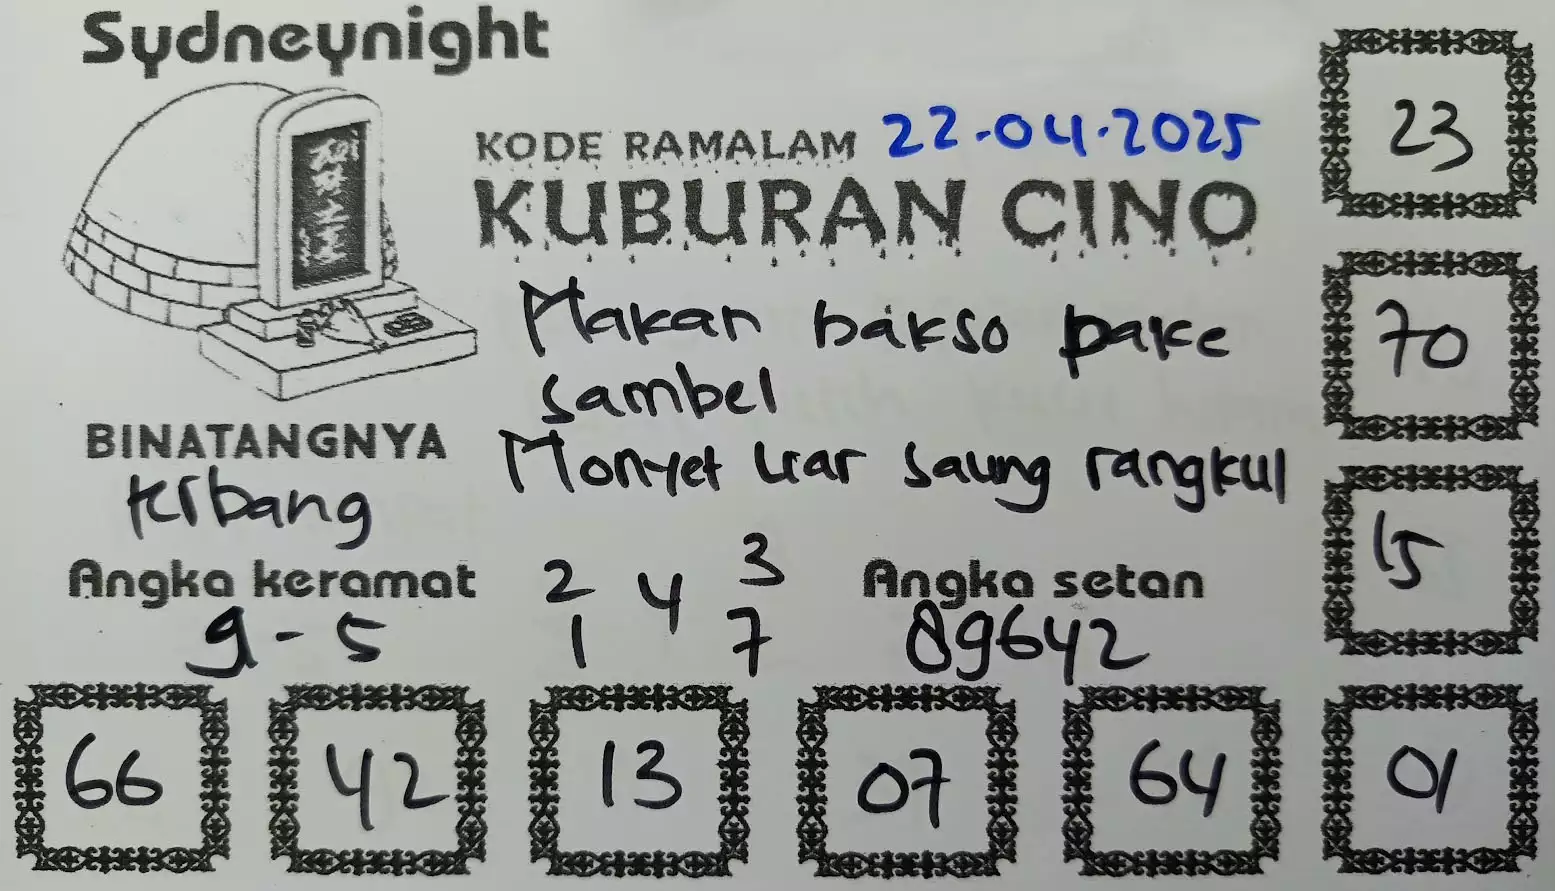 Sydneynight
KODE RAMALAM 22-04-2025
KUBURAN CINO
Makan bakso pake
sambel
Monyet liar saung rangkul
BINATANGNYA
terbang
Angka keramat
9-5
2 4 3
1 7
Angka setan
89642
23
70
15
66 42 13 07 64 01